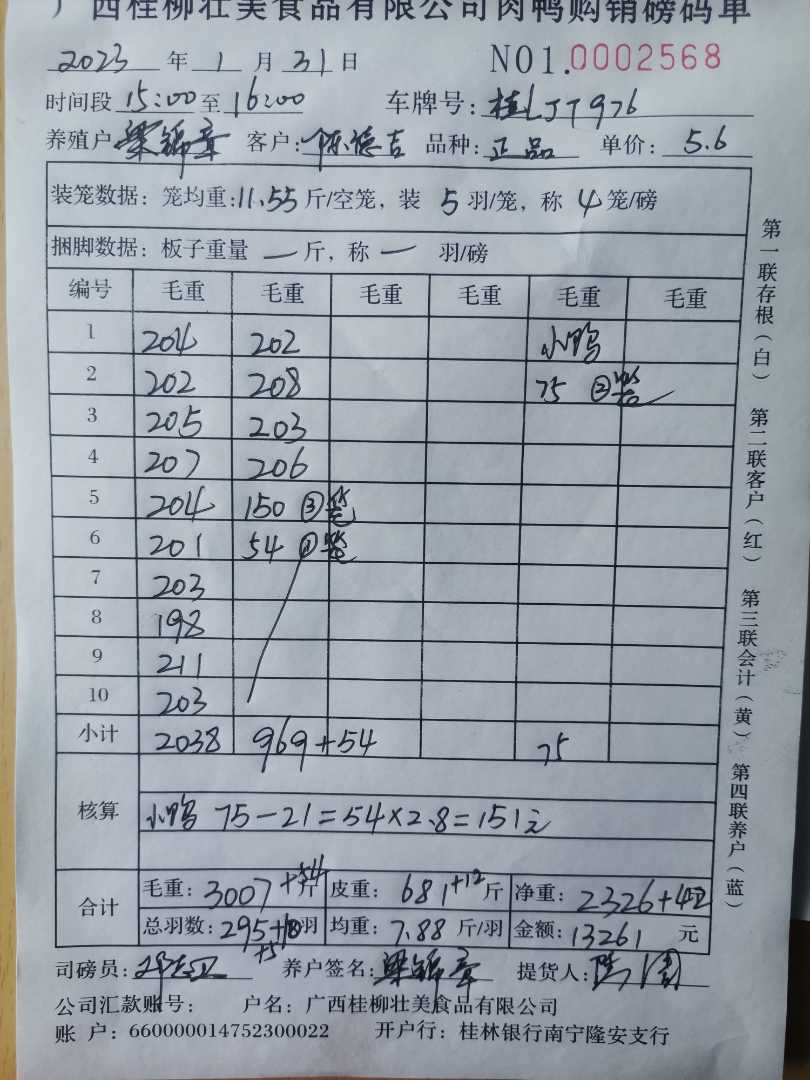 广西桂柳壮美食品有限公司肉鸭购销磅码单
2023 年 1 月 31 日 NO1.0002568
时间段 15:00 至 16:00 车牌号: 桂LJT976
养殖户 梁锦章 客户: 陈德吉 品种: 正品 单价: 5.6
装笼数据: 笼均重: 11.55 斤/空笼, 装 5 羽/笼, 称 4 笼/磅
捆脚数据: 板子重量 一 斤, 称 一 羽/磅
编号 毛重 毛重 毛重 毛重 毛重 毛重
1 204 202 小鸭
2 202 208 75 ②笼
3 205 203
4 207 206
5 204 150 ③笼
6 201 54 ①笼
7 203
8 198
9 211
10 203
小计 2038 969+54 75
核算 小鸭 75-21=54×2.8=151元
合计 毛重: 3007+54 斤 皮重: 681+12 斤 净重: 2326+42
总羽数: 295+10+5 羽 均重: 7.88 斤/羽 金额: 13261 元
司磅员: 养户签名: 梁锦章 提货人:
公司汇款账号: 户名: 广西桂柳壮美食品有限公司
账 户: 660000014752300022 开户行: 桂林银行南宁隆安支行
第一联存根(白) 第二联客户(红) 第三联会计(黄) 第四联养户(蓝)